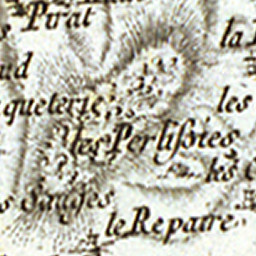 Pirat
la
ud
queterie
les
les Perlißies
les
s Sauges
le Repaire